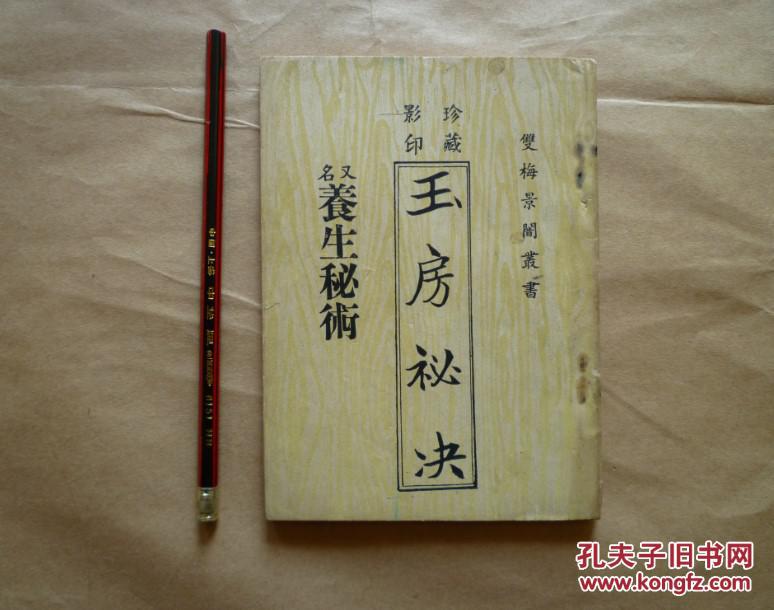 雙梅景闇叢書
珍藏
影印
玉房祕决
又名
養生秘術
中国·上海 中华
6151
孔夫子旧书网
www.kongfz.com